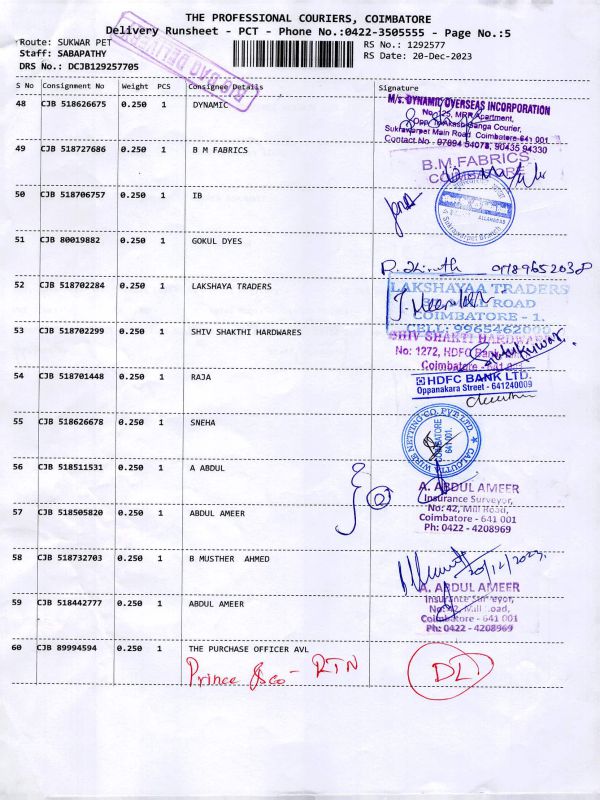 THE PROFESSIONAL COURIERS, COIMBATORE
Delivery Runsheet - PCT - Phone No.:0422-3505555 - Page No.:5
Route: SUKWAR PET
RS No.: 1292577
Staff: SABAPATHY
RS Date: 20-Dec-2023
DRS No.: DCJB129257705
S No Consignment No Weight PCS Consignee Details Signature
48 CJB 518626675 0.250 1 DYNAMIC
M/s. DYNAMIC OVERSEAS INCORPORATION
No. 25, MRR Apartment,
Opp. Akash Ganga Courier,
Sukrawarpet Main Road Coimbatore-641 001
Contact No - 97894 54078, 90435 94330
49 CJB 518727686 0.250 1 B M FABRICS
B.M. FABRICS
COIMBATORE
50 CJB 518706757 0.250 1 IB
ALLAHABAD
Sukrawarpet Branch
51 CJB 80019882 0.250 1 GOKUL DYES
52 CJB 518702284 0.250 1 LAKSHAYA TRADERS
LAKSHAYAA TRADERS
ROAD
COIMBATORE - 1.
CELL: 9965462000
53 CJB 518702299 0.250 1 SHIV SHAKTHI HARDWARES
SHIV SHAKTI HARDWARE
No: 1272, HDFC Bank
Coimbatore - 641 001
54 CJB 518701448 0.250 1 RAJA
HDFC BANK LTD.
Oppanakara Street - 641240009
55 CJB 518626678 0.250 1 SNEHA
CALCUTTA WIRE NETTING CO. PVT. LTD.
COIMBATORE
641 001.
56 CJB 518511531 0.250 1 A ABDUL
57 CJB 518505820 0.250 1 ABDUL AMEER
A. ABDUL AMEER
Insurance Surveyor,
No: 42, Mill Road,
Coimbatore - 641 001
Ph: 0422 - 4208969
58 CJB 518732703 0.250 1 B MUSTHER AHMED
20/12/2023
59 CJB 518442777 0.250 1 ABDUL AMEER
A. ABDUL AMEER
Insurance Surveyor,
No: 42, Mill Road,
Coimbatore - 641 001
Ph: 0422 - 4208969
60 CJB 89994594 0.250 1 THE PURCHASE OFFICER AVL
Prince - RTN